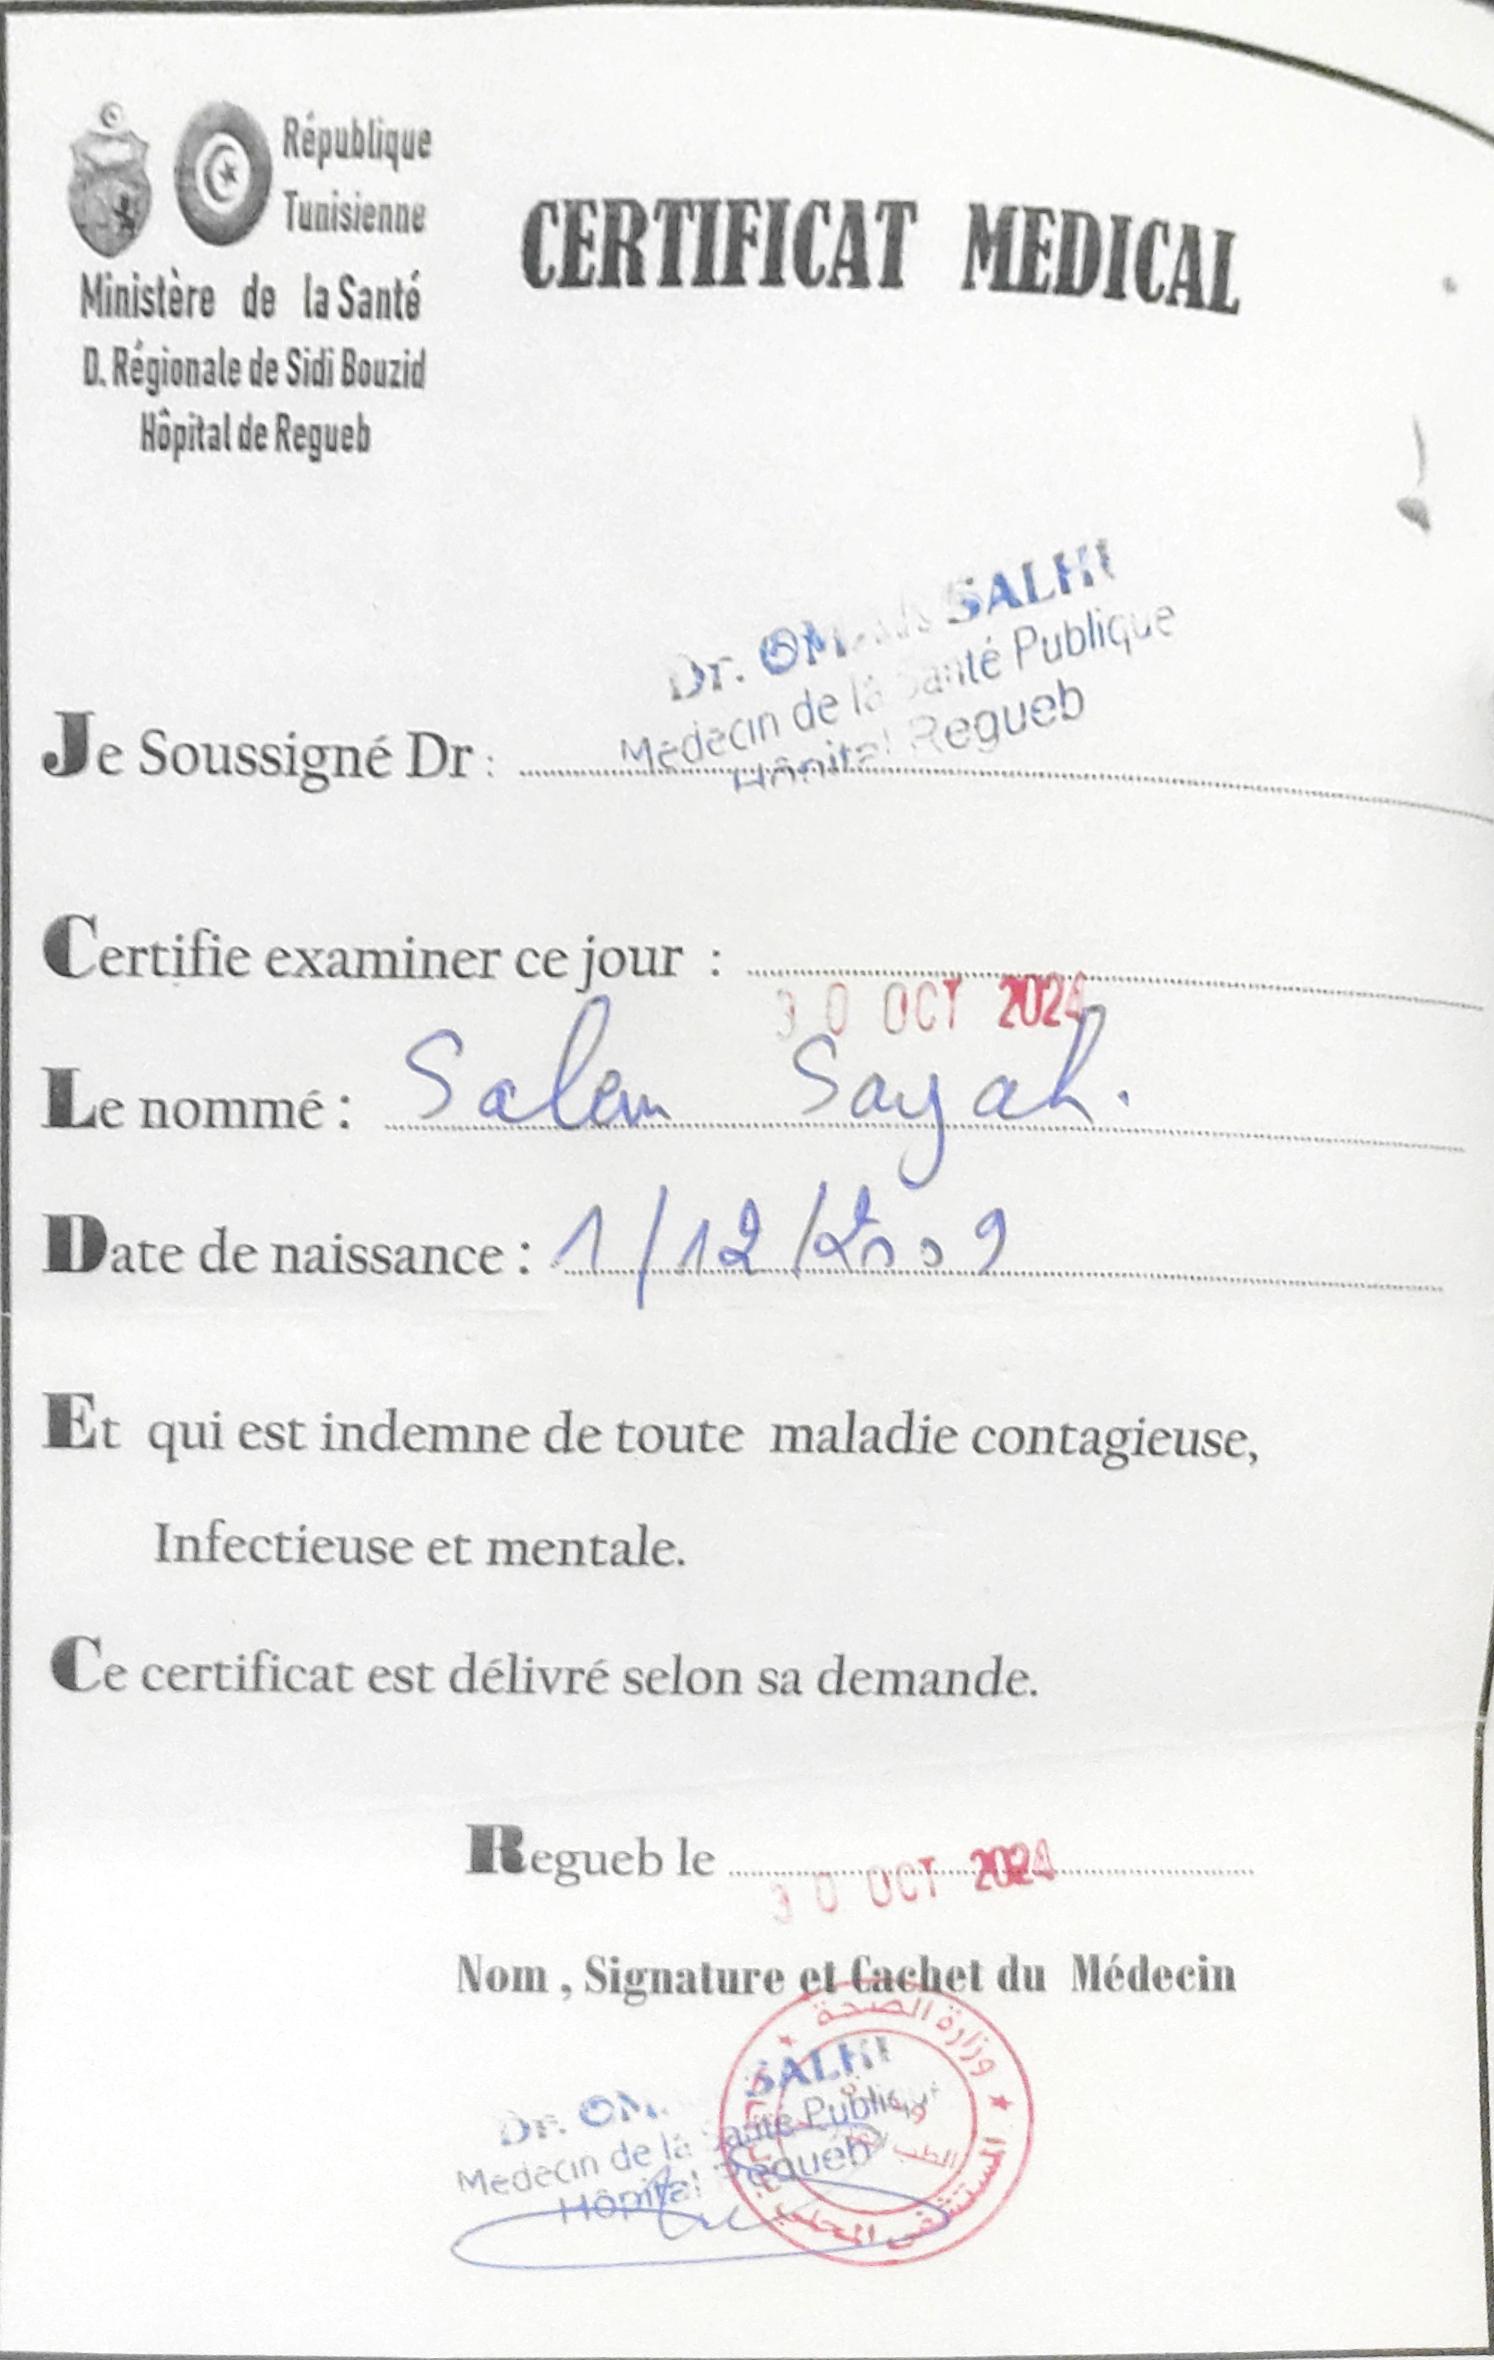 République
Tunisienne
Ministère de la Santé
D. Régionale de Sidi Bouzid
Hôpital de Regueb
CERTIFICAT MEDICAL
Dr. SALHI
Medecin de la Santé Publique
Hôpital Regueb
Je Soussigné Dr :
Certifie examiner ce jour :
30 OCT 2024
Le nommé : Salem Sayah.
Date de naissance : 1/12/2009
Et qui est indemne de toute maladie contagieuse,
Infectieuse et mentale.
Ce certificat est délivré selon sa demande.
Regueb le
30 OCT 2024
Nom , Signature et Cachet du Médecin
وزارة الصحة
Dr. SALHI
Medecin de la Santé Publique
Hôpital Regueb
الطب
المستشفى المحلي